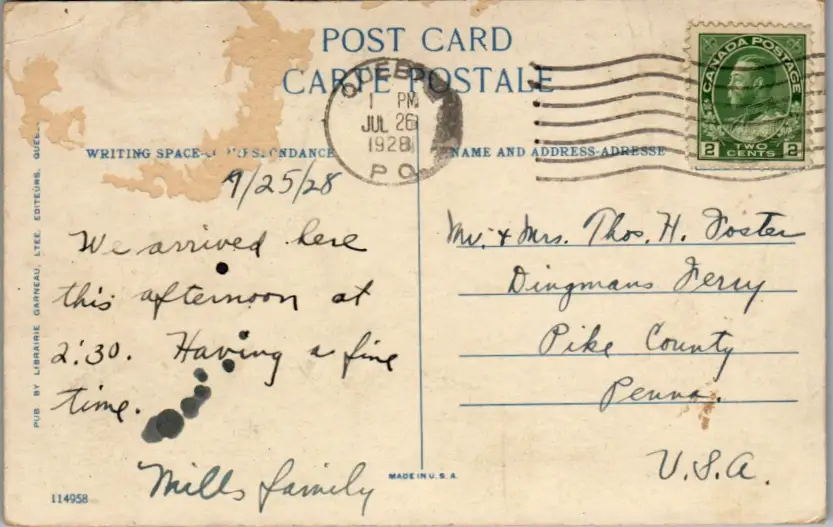 POST CARD
CARTE POSTALE
QUEBEC
1 PM
JUL 26
1928
P Q
CANADA POSTAGE
2 TWO CENTS 2
WRITING SPACE-
NAME AND ADDRESS-ADRESSE
/25/28
We arrived here
this afternoon at
2:30. Having a fine
time.
Mills family
Mr. & Mrs. Thos. H. Foster
Dingmans Ferry
Pike County
Penna.
U.S.A.
PUB. BY LIBRAIRIE GARNEAU, LTEE, EDITEURS,
MADE IN U.S.A.
114958